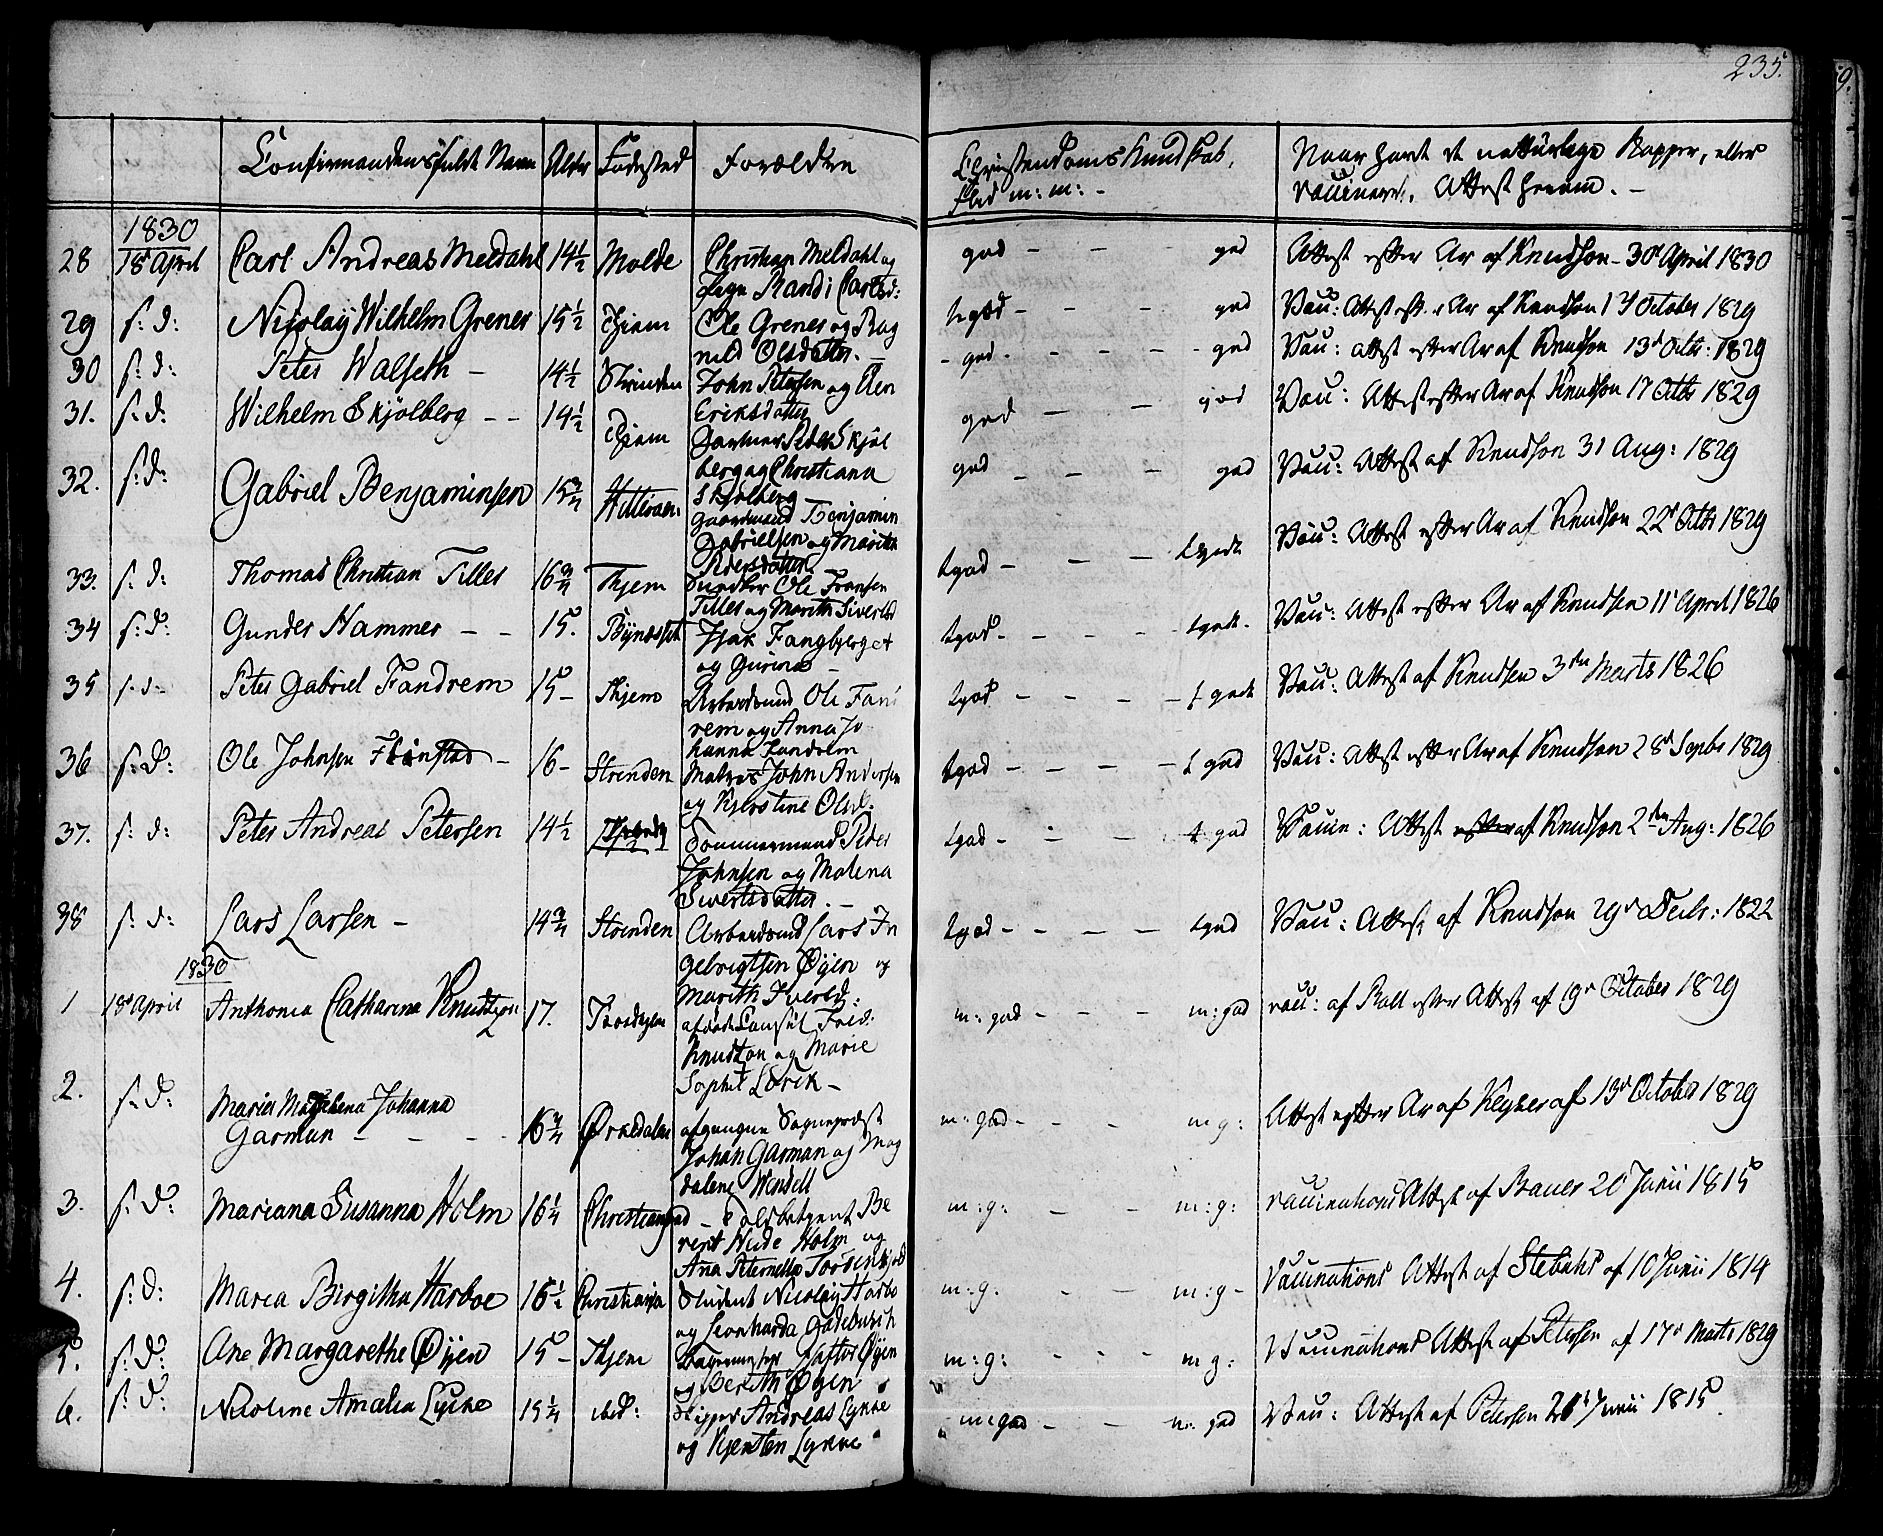 235.
Confirmandens fulde Navn Alder Fødested Forældre Christendoms Kundskab, Flid m: m: - Naar havt de naturlige Kopper, eller vaccineret. Attest herom. -
1830
28 18d April Carl Andreas Meldahl 14½ Molde Christian Meldahl og Randi Carlsd: god - - - god Attest efter Ar af Knudson - 30d April 1830
29 s: d: Nicolay Wilhelm Grenes 15½ Thjem Ole Grenes og Rag nild Olsdatter. - tgod - - - god Vacc: Attest eft. Ar af Knudson 13 October 1829
30 s: d: Peter Walseth - 14½ Strinden John Petersen og Elen Eriksdatter - god - - - - god Vacc: attest efter Ar af Knudson 13d Octb: 1829
31. s: d: Wilhelm Skjølberg - - 14½ Thjem Gartner Peder Skjøl berg og Christiana Skjølberg god - - god Vacc: Attest efter Ar af Knudson 17 Octb 1829
32. s: d: Gabriel Benjaminsen 15¾ Hitteroen: Gaardmand Benjamin Gabrielsen og Marith Pedersdatter god - - - god Vacc: Attest af Knudson 31 Aug: 1829
33. s: d: Thomas Christian Tiller 16¾ Thjem Ole Fransen Tiller og Marith Sivertsd tgod - - - tgodt Vacc: Attest efter Ar af Knudson 22d Octb 1829
34 s: d: Gunder Hammer - - 15. Bÿnæsset Isak Fangbjerget og Gurine - tgod - - - - tgodt - Vacc: Attest efter Ar af Knudson 11d April 1826
35 s. d. Peter Gabriel Fandrem 15 - Thjem Arbeidsmd Ole Fand rem og Anna Jo hanna Fandrem tgod - - - - tgodt Vacc: Attest af Knudsen 3den Marts 1826
36 s: d: Ole Johnsen Finstad - 16 - Strinden Matros John Andersen og Kjerstine Olsd. tgod - - - - tgod Vacc: Attest efter Ar af Knudson 28d Septbr 1829
37. s: d: Peter Andreas Petersen 14½ Tømmermand Peder Johnsen og Malena Sivertsdatter. - tgod - - - t god Vaccin: Attest efter af Knudson 2den Aug: 1826
38 s: d: Lars Larsen - 14¾ Strinden Arbeidsmd Lars In gebrigtsen Øyen og Marith Iversd: tgod - - - - tgod Vacc: Attest af Knudson 29d Decbr: 1822
1830
1 18d April Anthonia Catharina Knudtzon 17. Trondhjem afdøde Consul Fred: Knudtzon og Marie Sophie Lorck - m: god - - - m: god vacc: af Rall efter Attest af 19d October 1829
2. s: d: Maria Magdalena Johanna Garman - - - - 16¾ Ørkedalen afgangne Sognepræst Johan Garman og Mag dalene Wensell m: god - - - m g: Attest efter Ar af Keyser af 13d October 1829
3. s: d: Mariana Susanna Holm 16¼ Christiansd - Toldbetjent Be rent Holm og Ana Peternella Tordenskjold m: g: - - - m: g: vaccinations Attest af Bauer 20 Junii 1815
4. s: d: Maria Birgitha Harboe 15½ Christiania Student Nicolay Harbo og Leonharda Gadebusch m: g. - - - m: g - Vaccinations Attest af af 10 Junii 1814
5. s: d: Ane Margarethe Øÿen 15 - Thjem Øÿen og Berith Øyen m: g: - - - m g: Vaccinations Attest af Petersen af 17d Marts 1829
6. s: d: Nicoline Amalia Lycke 15¼ ibid: Skipper Andreas Lycke og Kjersten Lycke - m: god - - - m. god Vacc: Attest af Petersen Junii 1815.